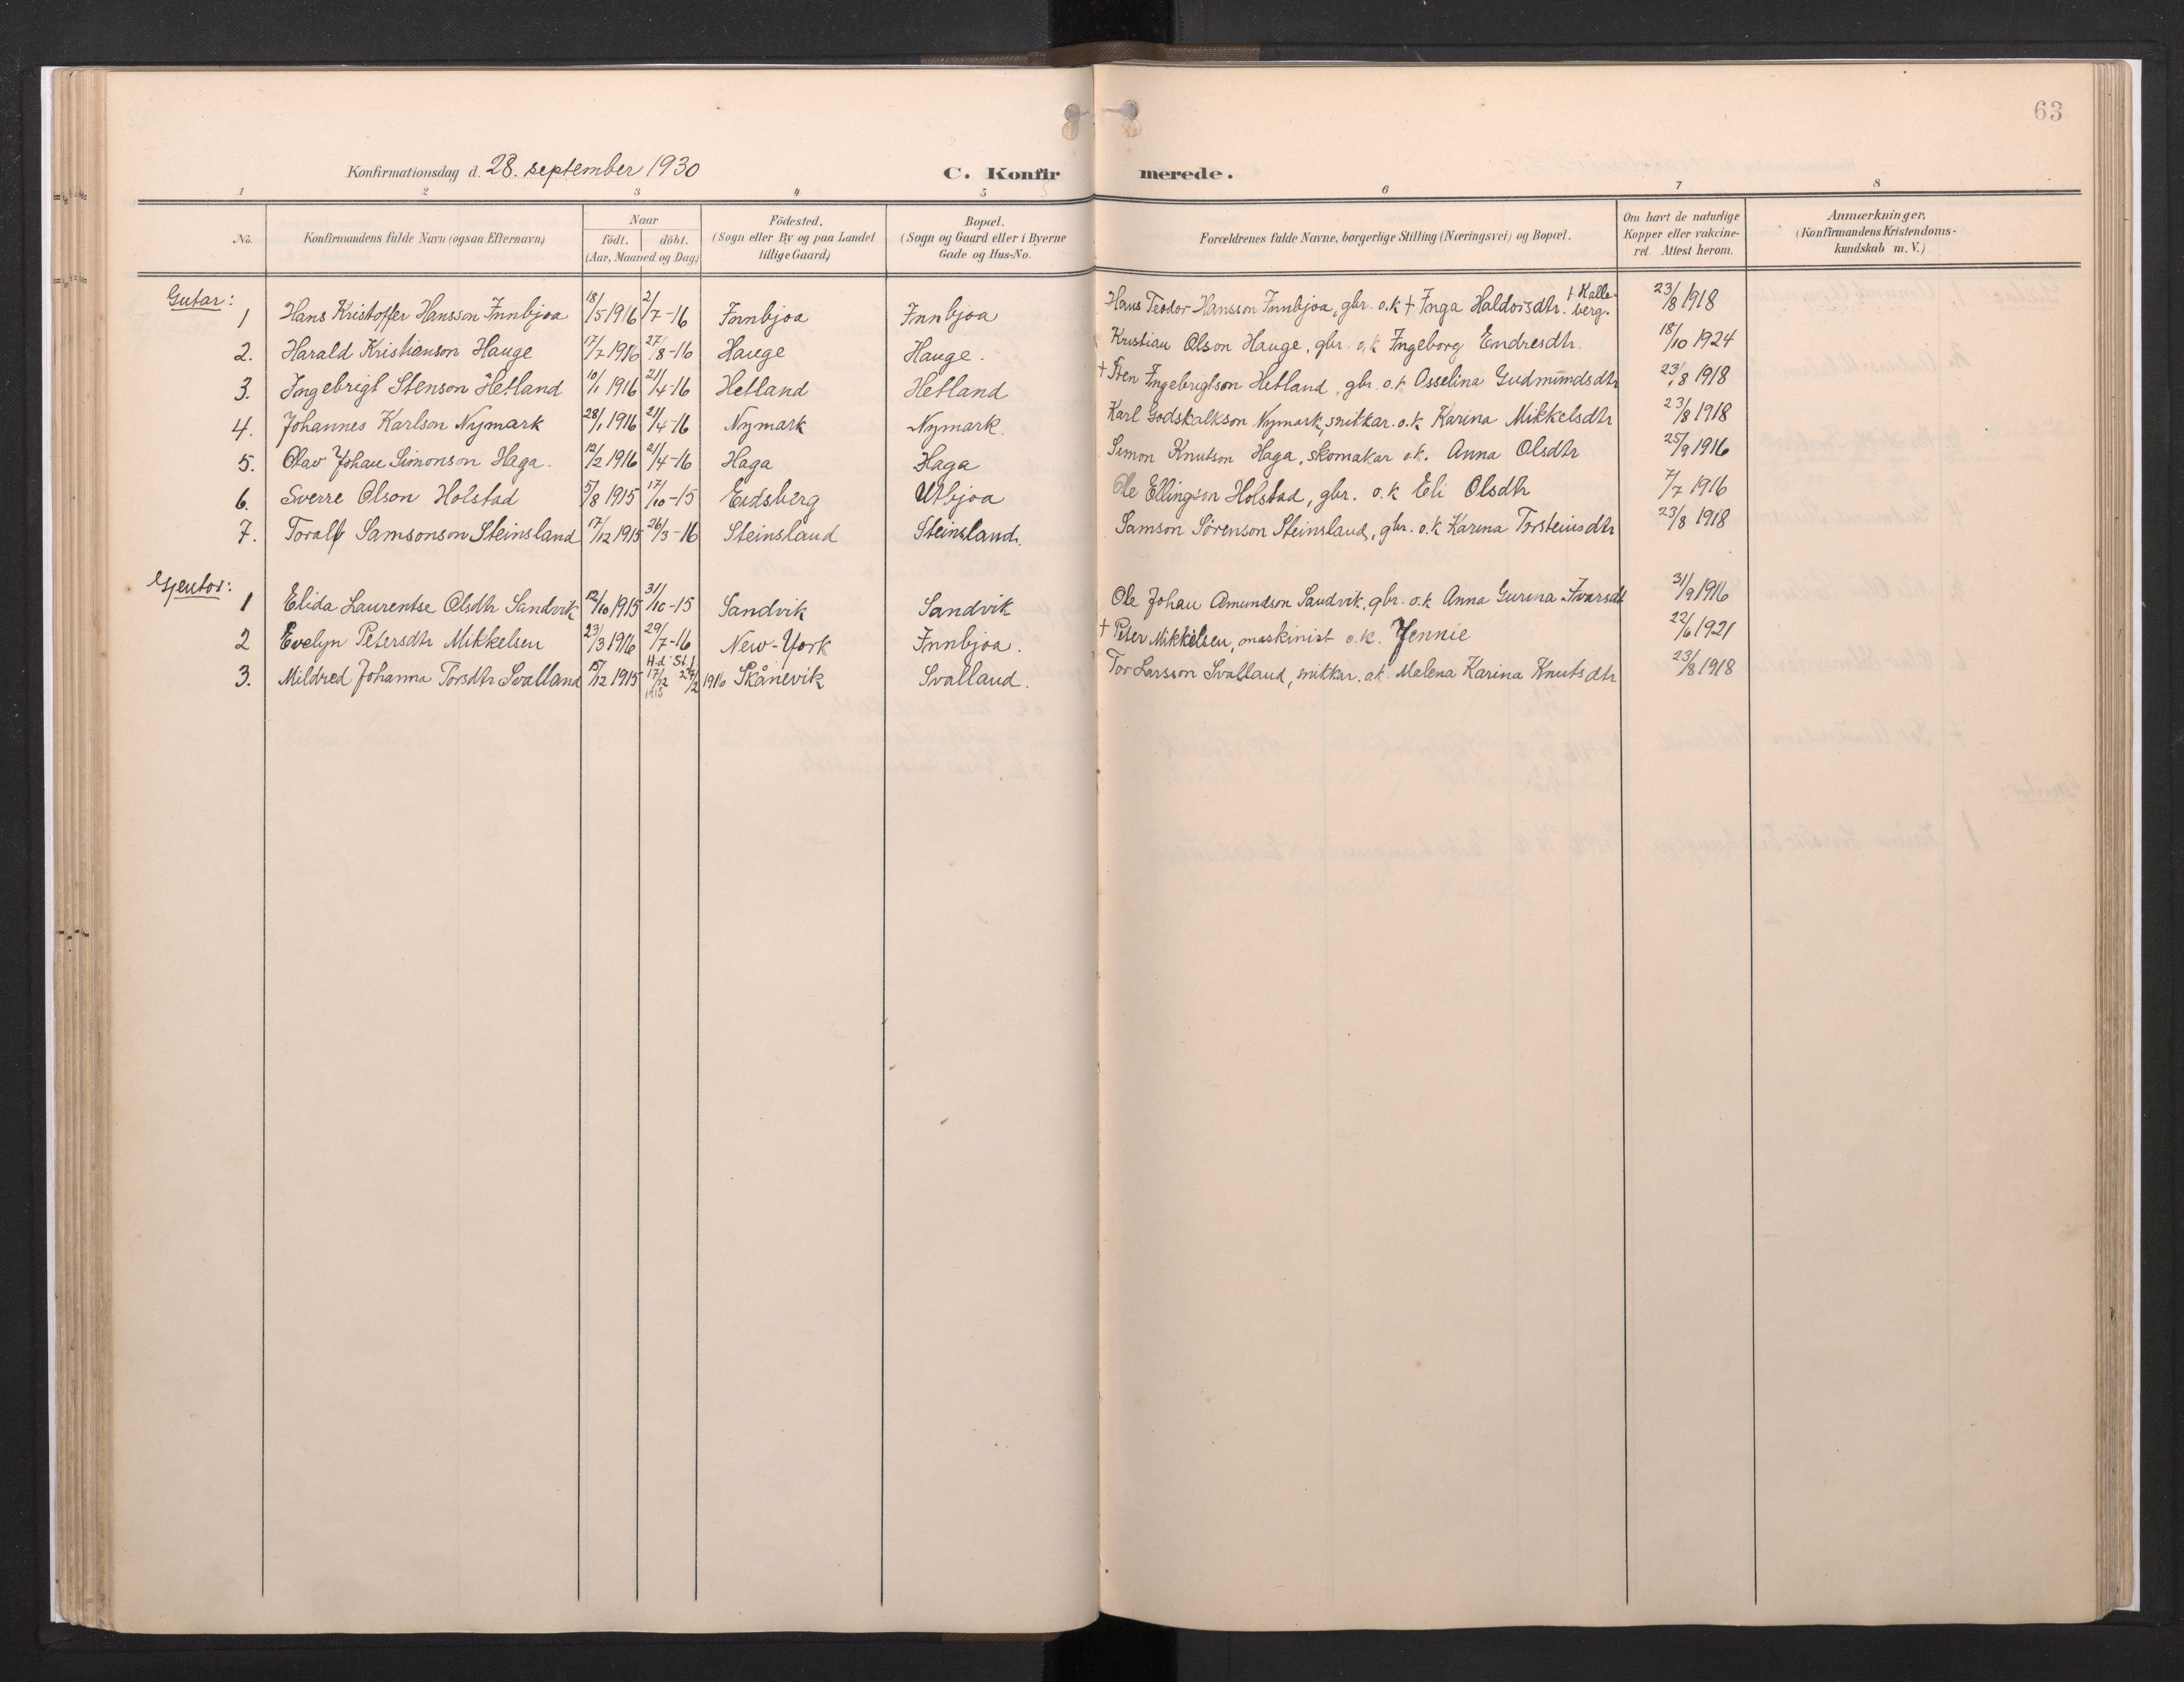 63
Konfirmationsdag d. 28. september 1930 C. Konfirmerede.
1 2 3 4 5 6 7 8
No. Konfirmandens fulde Navn (ogsaa Efternavn) Naar födt. döbt. (Aar, Maaned og Dag) Födested. (Sogn eller By og paa Landet tillige Gaard) Bopæl. (Sogn og Gaard eller i Byerne Gade og Hus-No. Forældrenes fulde Navne, borgerlige Stilling (Næringsvei) og Bopæl. Om havt de naturlige Kopper eller vakcineret. Attest herom. Anmærkninger. (Konfirmandens Kristendomskundskab m. V.)
Gutar:
1 Hans Kristoffer Hansson Innbjoa 18/5 1916 2/7-16 Innbjoa Innbjoa Hans Teodor Hansson Innbjoa, gbr. o.k + Inga Haldorsdtr. f. Kalleberg. 23/8 1918
2. Harald Kristianson Hauge 17/7 1916 27/8-16 Hauge Hauge. Kristian Olson Hauge, gbr. o.k Ingeborg Endresdtr. 18/10 1924
3. Ingebrigt Stenson Hetland 10/1 1916 21/4-16 Hetland Hetland + Sten Ingebrigtson Hetland, gbr. o.k Osselina Gudmundsdtr 23/8 1918
4. Johannes Karlson Nymark 28/1 1916 21/4-16 Nymark Nymark. Karl Godskalkson Nymark, snikkar. o.k Karina Mikkelsdtr 23/8 1918
5. Olav Johan Simonson Haga. 12/2 1916 21/4-16 Haga Haga Simon Knutson Haga, skomakar o.k. Anna Olsdtr 25/9 1916
6. Sverre Olson Holstad 5/8 1915 17/10-15 Eidsberg Utbjoa Ole Ellingson Holstad, gbr. o.k Eli Olsdtr 7/7 1916
7. Toralf Samsonson Steinsland 17/12 1915 26/3-16 Steinsland Steinsland. Samson Sørenson Steinsland, gbr. o.k Karina Torsteinsdtr 23/8 1918
Gjentor:
1 Elida Laurentse Olsdtr Sandvik 12/10 1915 31/10-15 Sandvik Sandvik Ole Johan Amundson Sandvik, gbr. o.k Anna Gurina Ivarsdt 31/9 1916
2 Evelyn Petersdtr Mikkelsen 23/3 1916 29/7-16 New-York Innbjoa. + Peter Mikkelsen, maskinist o.k. Jennie 22/6 1921
3. Mildred Johanna Torsdtr Svalland 15/12 1915 H.d. 17/12 1915 St. f. 27/2 1916 Skånevik Svalland. Tor Larsson Svalland, snikkar. o.k. Malena Karina Knutsdtr 23/8 1918